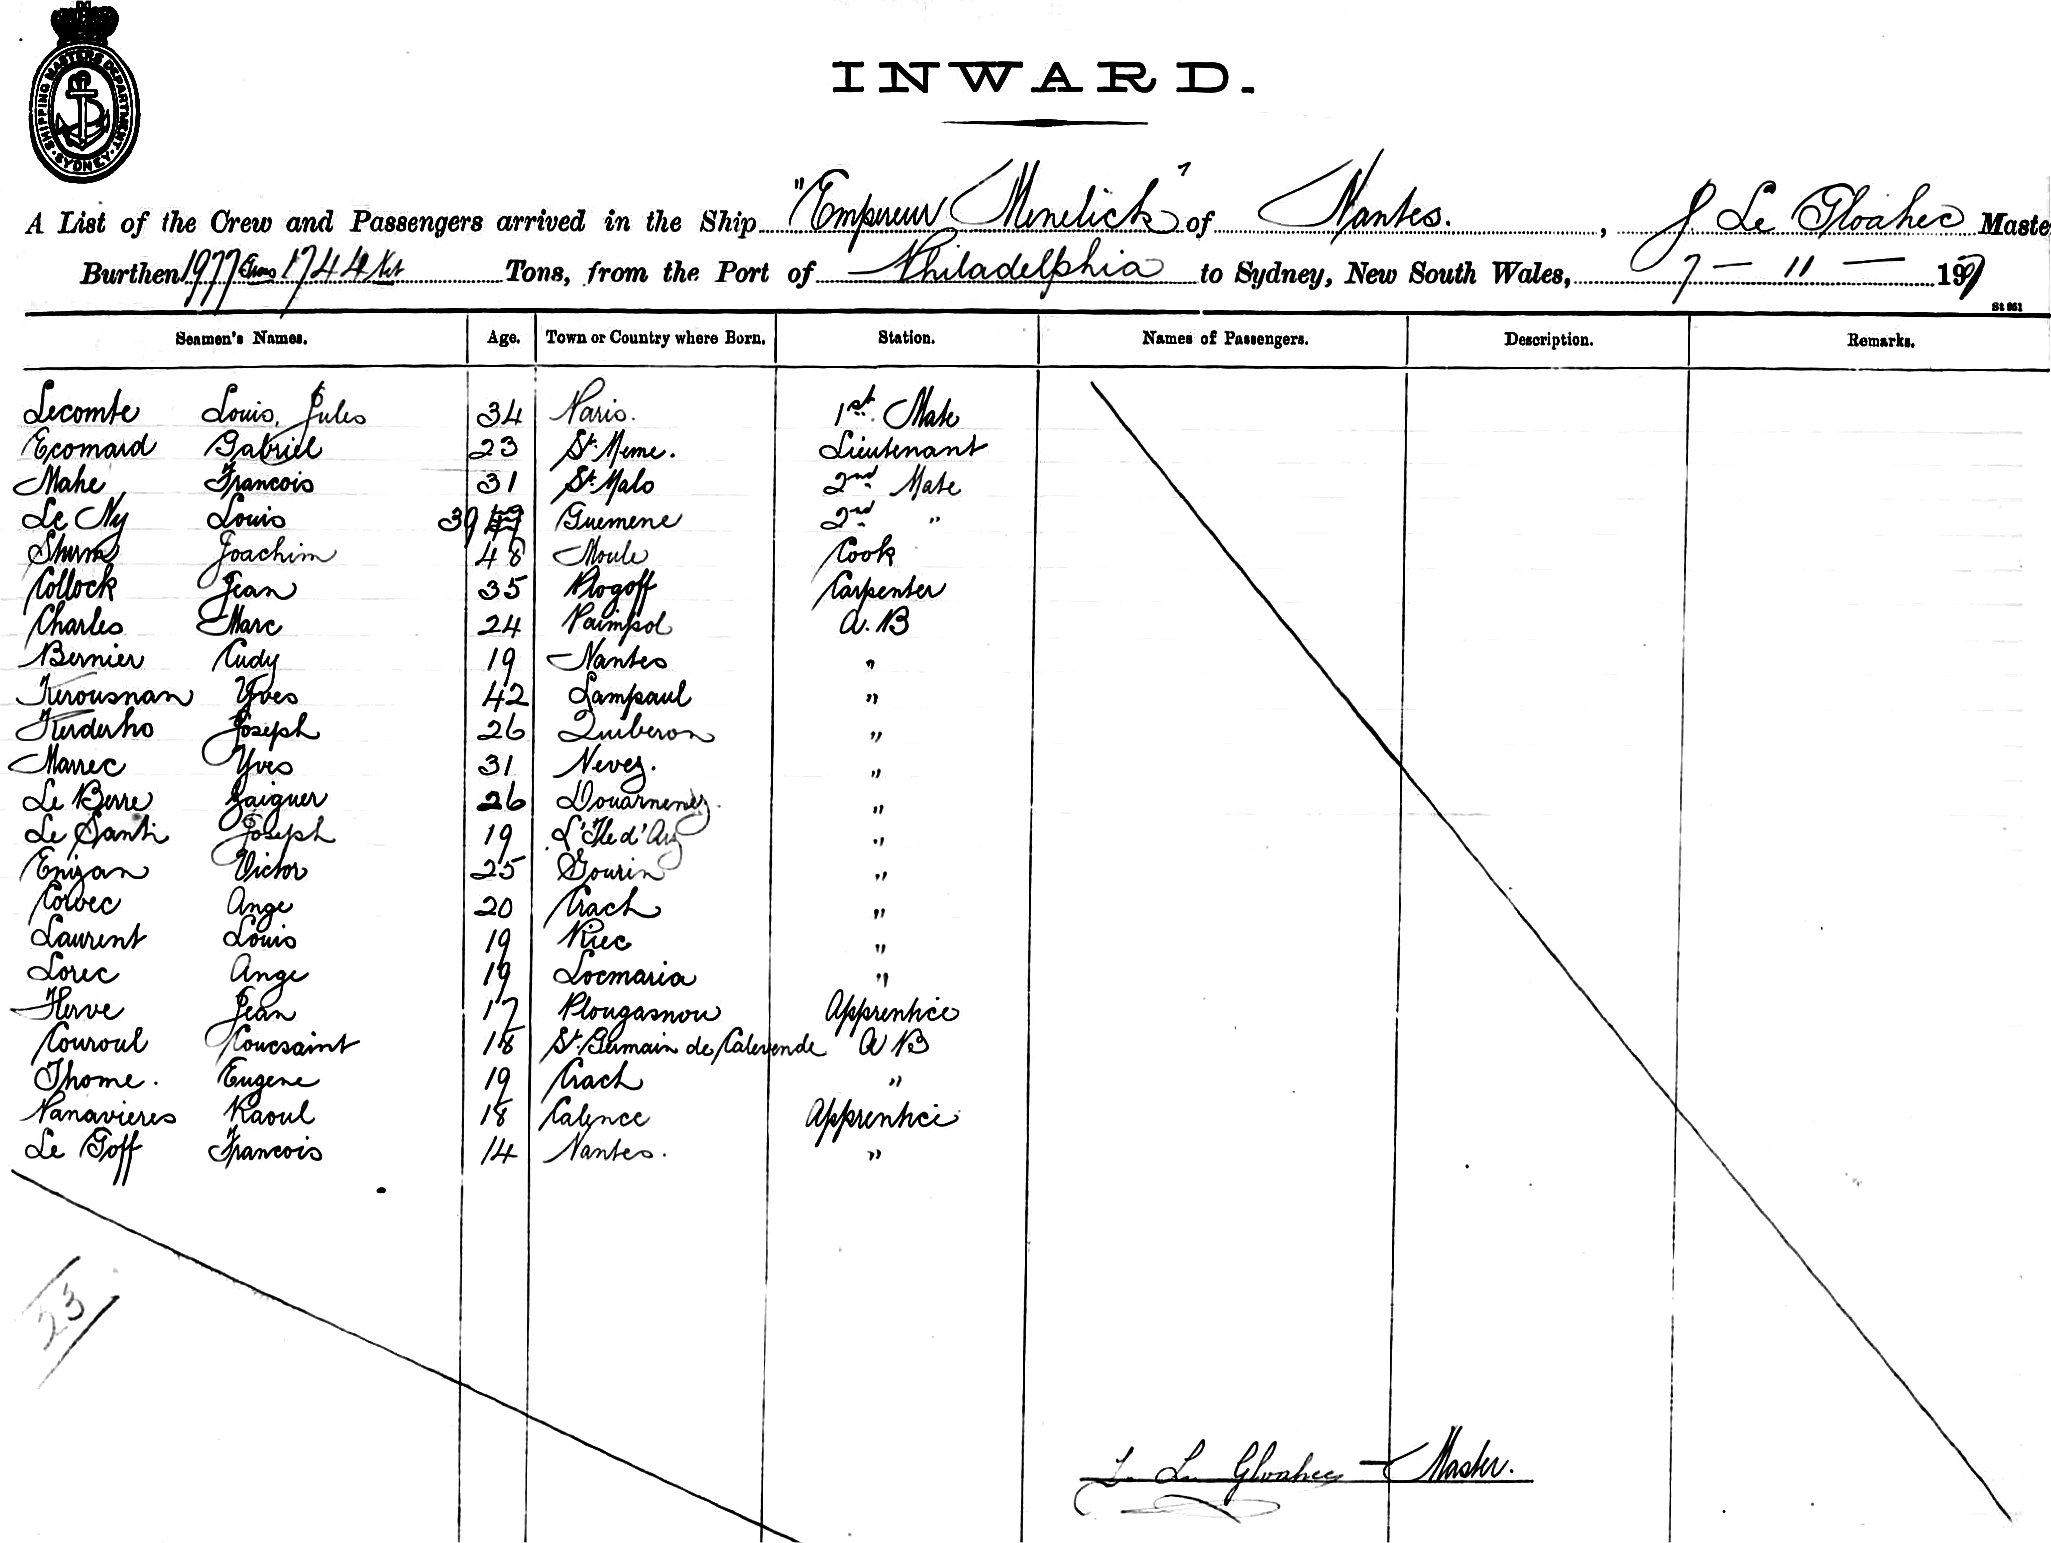 SHIPPING MASTERS DEPARTMENT · SYDNEY ·
INWARD.
A List of the Crew and Passengers arrived in the Ship "Empereur Menelick" of Nantes. , J Le Gloahec Maste
Burthen 1977 Gross 1744 Net Tons, from the Port of Philadelphia to Sydney, New South Wales, 7 – 11 – 1907
St 961
Seamen's Names. Age. Town or Country where Born. Station. Names of Passengers. Description. Remarks.
Lecomte Louis, Jules 34 Paris. 1st Mate
Ecomard Gabriel 23 St. Meme. Lieutenant
Mahe Francois 31 St. Malo 2nd Mate
Le Ny Louis 39 Guemene 2nd "
Joachim 48 Moule Cook
Collock Jean 35 Plogoff Carpenter
Charles Marc 24 Paimpol A. B
Bernier Cudy 19 Nantes "
Kerousnan Yves 42 Lampaul "
Kerderho Joseph 26 Quiberon "
Marrec Yves 31 Nevez. "
Le Berre Gaiguer 26 Douarnenez. "
Le Santi Joseph 19 L'Ile d'Arz "
Enizan Victor 25 Gourin "
Corvec Ange 20 Crach "
Laurent Louis 19 Riec "
Lorec Ange 19 Locmaria "
Herve Jean 17 Plougasnou Apprentice
Couroul Toussaint 18 St. Germain de Calevende A B
Thome. Eugene 19 Crach "
Panavieres Raoul 18 Calence Apprentice
Le Goff Francois 14 Nantes. "
23
J. Le Gloahec – Master.